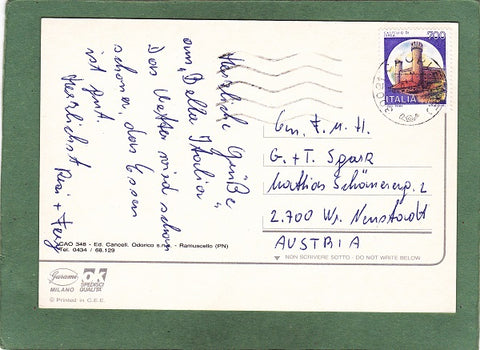 Herzliche Grüße
aus "Bella Italia"
Das Wetter wird schon
schöner, das Essen
ist gut.
Herzlichst
700
ITALIA
Fam. F. M. H.
G. + T. Spark
Mathias Schönererg. 2
2.700 Wr. Neustadt
AUSTRIA
NON SCRIVERE SOTTO - DO NOT WRITE BELOW
CAO 348 - Ed. Cancell. Odorico - Ramuscello (PN)
Tel. 0434 / 68.129
Garami
MILANO
OK
SPEDISCI
QUALITÀ
© Printed in C.E.E.